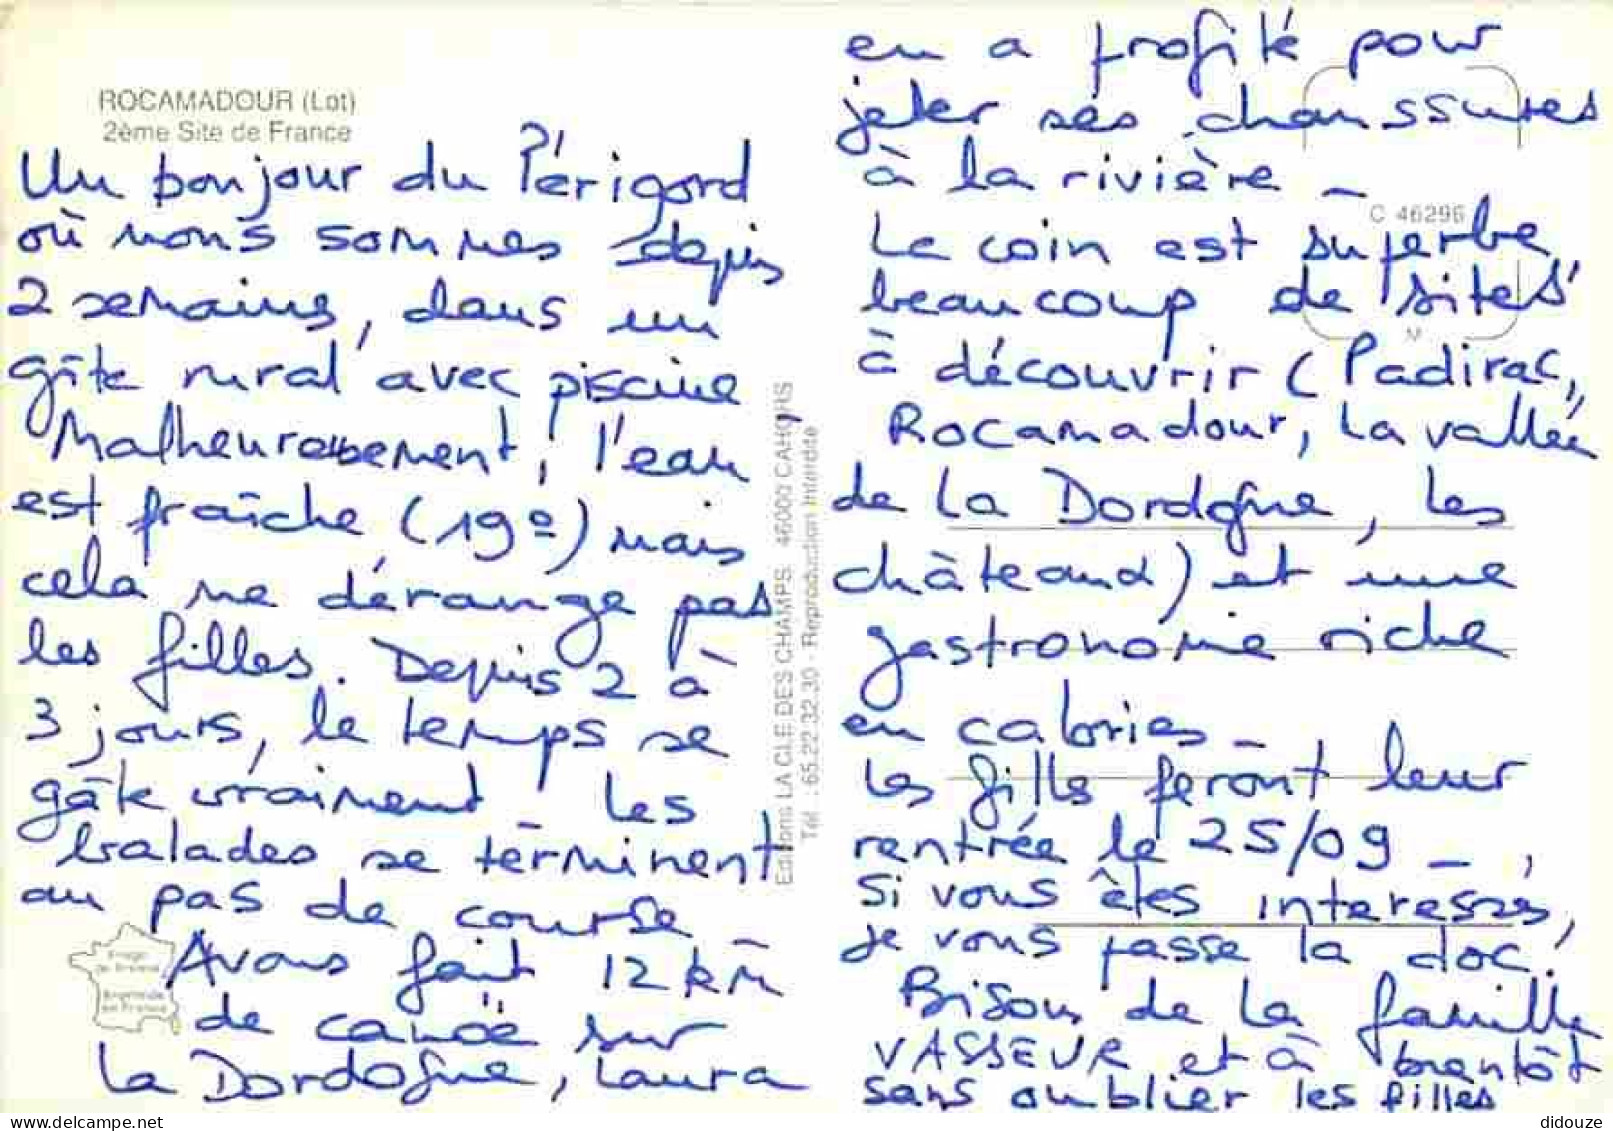 ROCAMADOUR (Lot)
2ème Site de France
Un bonjour du Périgord
où nous sommes depuis
2 semaines, dans un
gîte rural avec piscine
Malheureusement, l'eau
est fraîche (19°) mais
cela ne dérange pas
les filles. Depuis 2 à
3 jours, le temps se
gâte vraiment les
balades se terminent
au pas de course
Avons fait 12 km
de canoë sur
la Dordogne, Laura
en a profité pour
jeter ses chaussures
à la rivière _
Le coin est superbe,
beaucoup de sites
à découvrir (Padirac,
Rocamadour, la vallée
de la Dordogne, les
châteaux) et une
gastronomie riche
en calories _
les filles feront leur
rentrée le 25/09 _
si vous êtes interessés,
je vous passe la doc.
Bisous de la famille
VASSEUR et à bientôt
sans oublier les filles
C 46296
M
Editions LA CLE DES CHAMPS 46000 CAHORS
Tél. : 65.22.32.30 - Reproduction interdite
Image de France
Imprimée en France
didouze